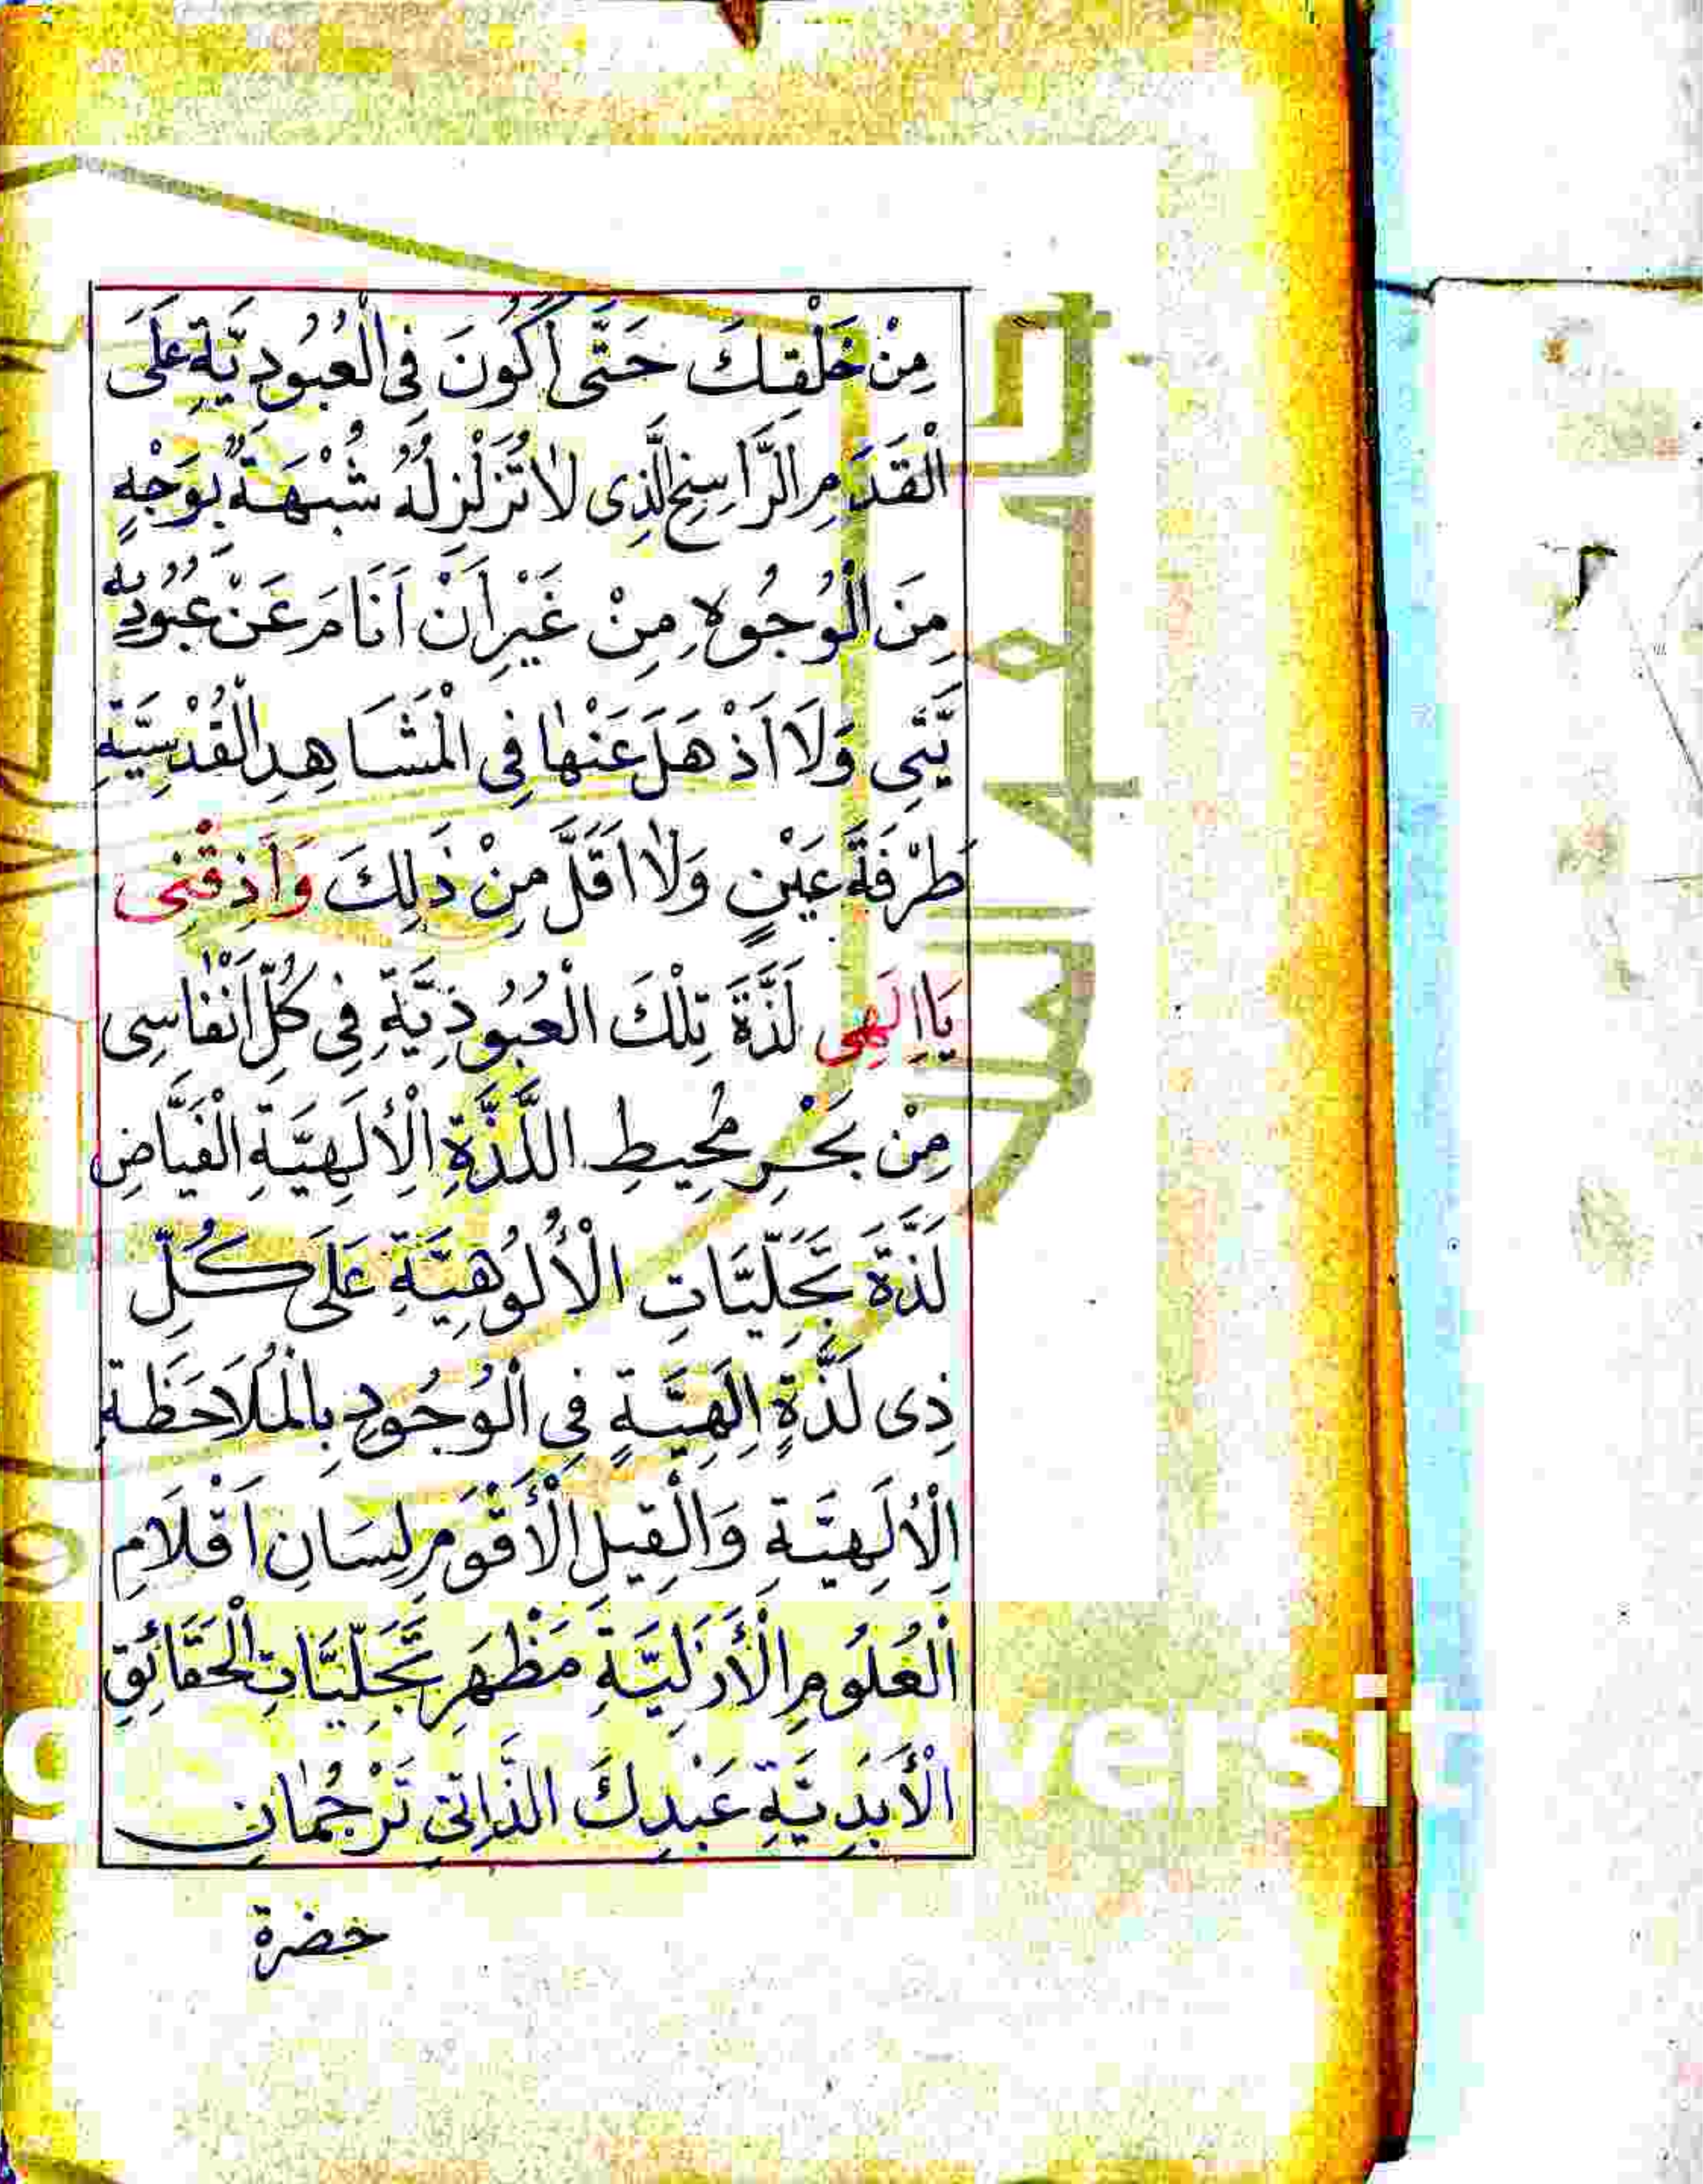 مِنْ خَلْقِكَ حَتَّى اَكُونَ فِى الْعُبُودِيَّةِ عَلَى
الْقَدَمِ الرَّاسِخِ الَّذِى لَاتُزَلْزِلُهُ شُبْهَةٌ بِوَجْهٍ
مِنَ الْوُجُوهِ مِنْ غَيْرِ اَنْ اَنَامَ عَنْ عُبُودِ
يَّتِى وَلَا اَذْهَلَ عَنْهَا فِى الْمَشَاهِدِ الْقُدْسِيَّةِ
طَرْفَةَ عَيْنٍ وَلَا اَقَلَّ مِنْ ذَلِكَ وَاَذِقْنِى
يَااِلَهِى لَذَّةَ تِلْكَ الْعُبُودِيَّةِ فِى كُلِّ اَنْفَاسِى
مِنْ بَحْرِ مُحِيطِ اللَّذَّةِ الْاِلَهِيَّةِ الْفَيَّاضِ
لَذَّةَ تَجَلِّيَّاتِ الْأُلُوهِيَّةِ عَلَى كُلِّ
ذِى لَذَّةٍ اِلَهِيَّةٍ فِى الْوُجُودِ بِالْمُلَاحَظَةِ
الْاِلَهِيَّةِ وَالْقِيلِ الْأَقْوَمِ لِسَانِ اَقْلَامِ
الْعُلُومِ الْأَزَلِيَّةِ مَظْهَرِ تَجَلِّيَّاتِ الْحَقَائِقِ
الْأَبَدِيَّةِ عَبْدِكَ الذَّاتِىِّ تَرْجُمَانِ
حضرة
versit